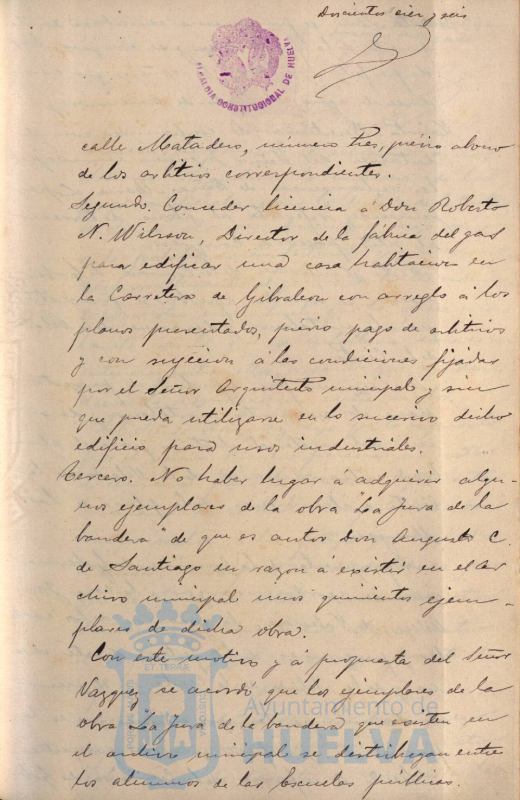 Doscientos diez y seis
ALCALDIA CONSTITUCIONAL DE HUELVA
calle Matadero, número tres, prévio abono
de los arbitrios correspondientes.
Segundo. Conceder licencia á Don Roberto
N. Wilsson, Director de la fábrica del gas
para edificar una casa habitacion en
la Carretera de Gibraleon con arreglo á los
planos presentados, prévio pago de arbitrios
y con sujecion á las condiciones fijadas
por el Señor Arquitecto municipal y sin
que pueda utilizarse en lo sucesivo dicho
edificio para usos industriales.
Tercero. No haber lugar á adquirir algu-
nos ejemplares de la obra "La Jura de la
bandera" de que es autor Don Augusto C.
de Santiago en razon á existir en el ar
chivo municipal unos quinientos ejem-
plares de dicha obra.
Con este motivo y á propuesta del Señor
Vazquez se acordó que los ejemplares de la
obra "La Jura de la bandera" que existen en
el archivo municipal se distribuyan entre
los alumnos de las Escuelas públicas.
Ayuntamiento de
HUELVA